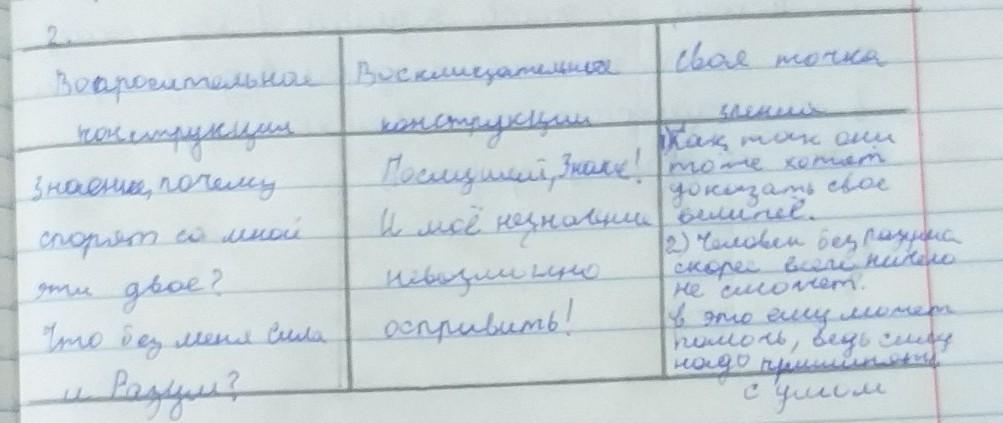 2.
Вопросительная
конструкция
Восклицательная
конструкции
Своя точка
зрения
Знаешь, почему
спорят со мной
эти двое?
Что без меня Сила
и Разум?
Послушай, Знак!
И моё незнание
невозможно
оспривить!
1) Так, так они
тоже хотят
доказать свое
величиё.
2) Человек без разума
скорее всего ничего
не сможет.
в это ему может
помочь, ведь силу
надо применять
с умом